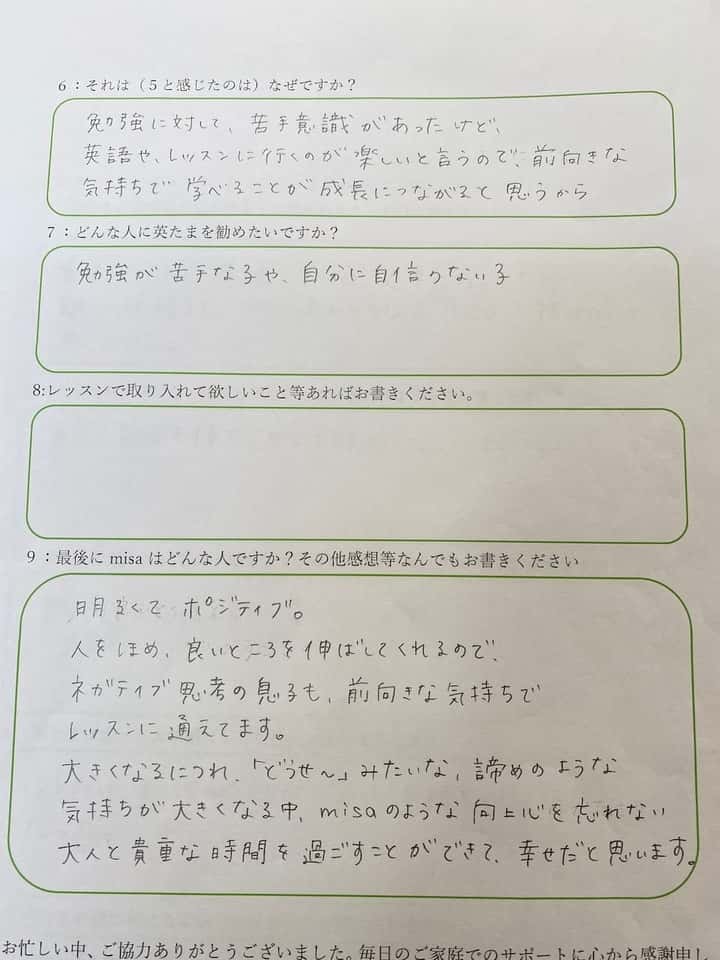 6：それは（５と感じたのは）なぜですか？
勉強に対して、苦手意識があったけど、
英語や、レッスンに行くのが楽しいと言うので、前向きな
気持ちで学べることが成長につながると思うから
7：どんな人に英たまを勧めたいですか？
勉強が苦手な子や、自分に自信のない子
8:レッスンで取り入れて欲しいこと等あればお書きください。
9：最後に misa はどんな人ですか？その他感想等なんでもお書きください
明るくてポジティブ。
人をほめ、良いところを伸ばしてくれるので、
ネガティブ思考の息子も、前向きな気持ちで
レッスンに通えてます。
大きくなるにつれ、「どうせ～」みたいな、諦めのような
気持ちが大きくなる中、misaのような向上心を忘れない
大人と貴重な時間を過ごすことができて、幸せだと思います。
お忙しい中、ご協力ありがとうございました。毎日のご家庭でのサポートに心から感謝申し